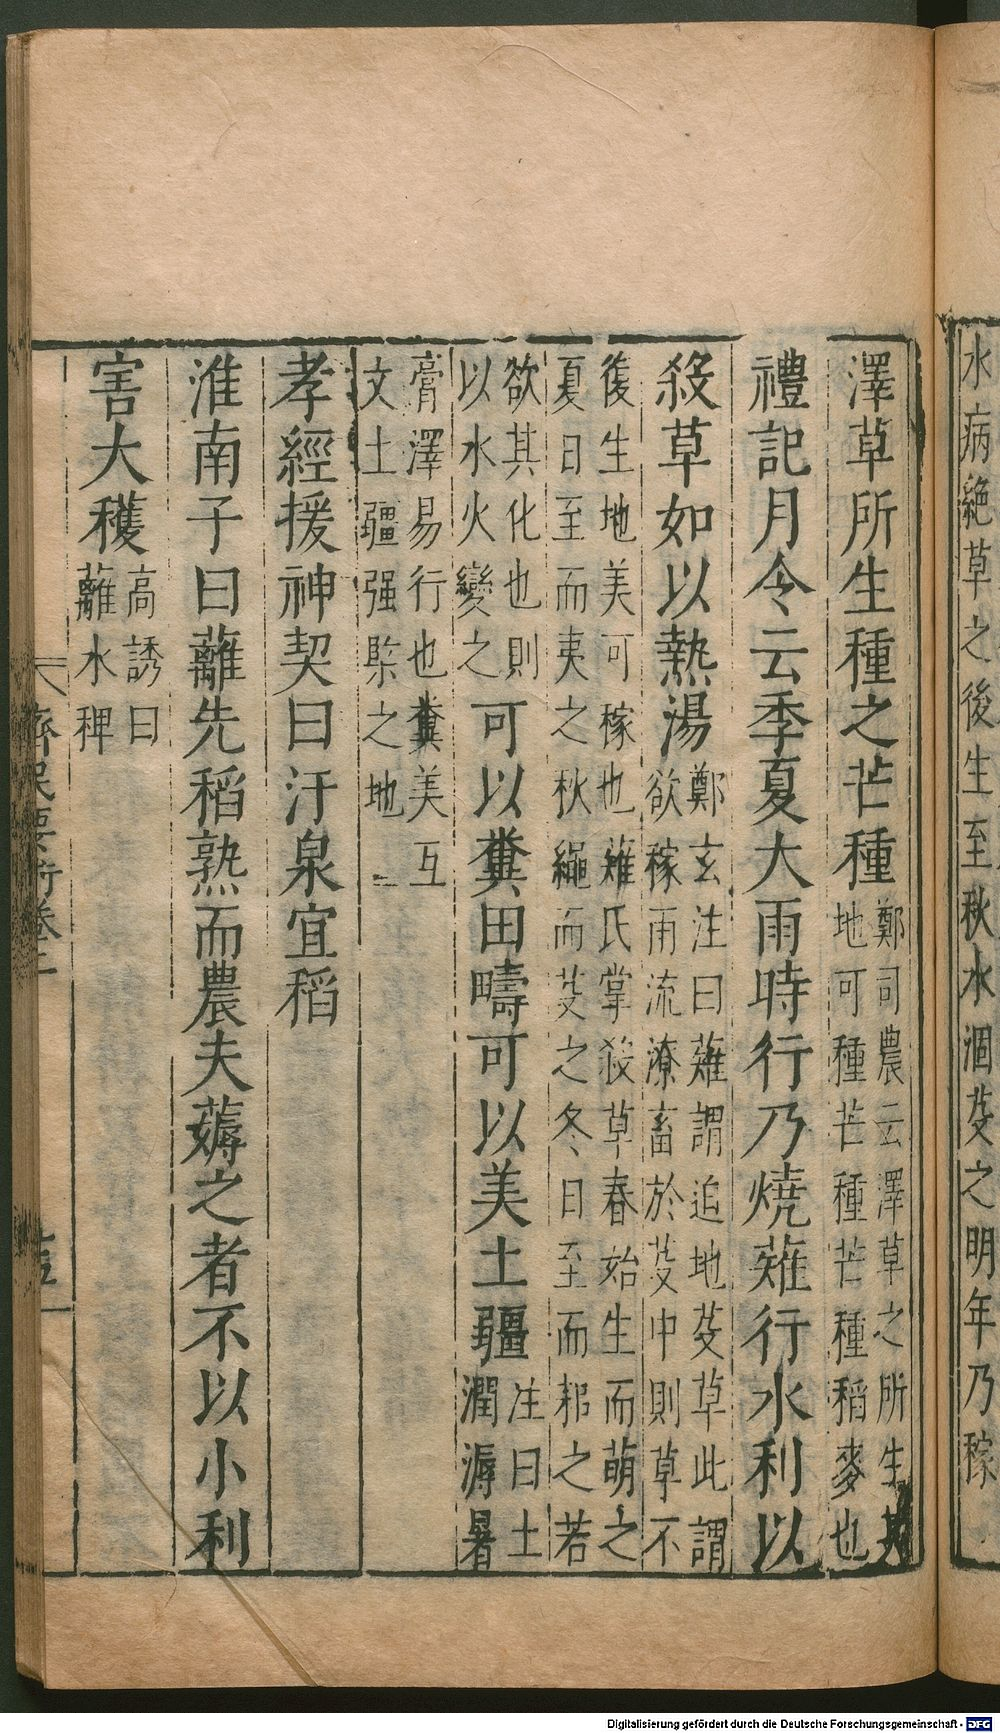 水病絶草之後生至秋水涸芟之明年乃稼
澤草所生種之芒種鄭司農云澤草之所生其
地可種芒種芒種稻麥也
禮記月令云季夏大雨時行乃燒薙行水利以
殺草如以熱湯鄭玄注曰薙謂迫地芟草此謂
欲稼雨流潦畜於芟中則草不
復生地美可稼也薙氏掌殺草春始生而萌之
夏日至而夷之秋繩而芟之冬日至而耜之若
欲其化也則
以水火變之可以糞田疇可以美土疆注曰土
潤溽暑
膏澤易行也糞美互
文土疆强㯺之地
孝經援神契曰汙泉宜稻
淮南子曰蘺先稻熟而農夫薅之者不以小利
害大穫高誘曰
蘺水稗
齊民要術卷二
Digitalisierung gefördert durch die Deutsche Forschungsgemeinschaft - DFG